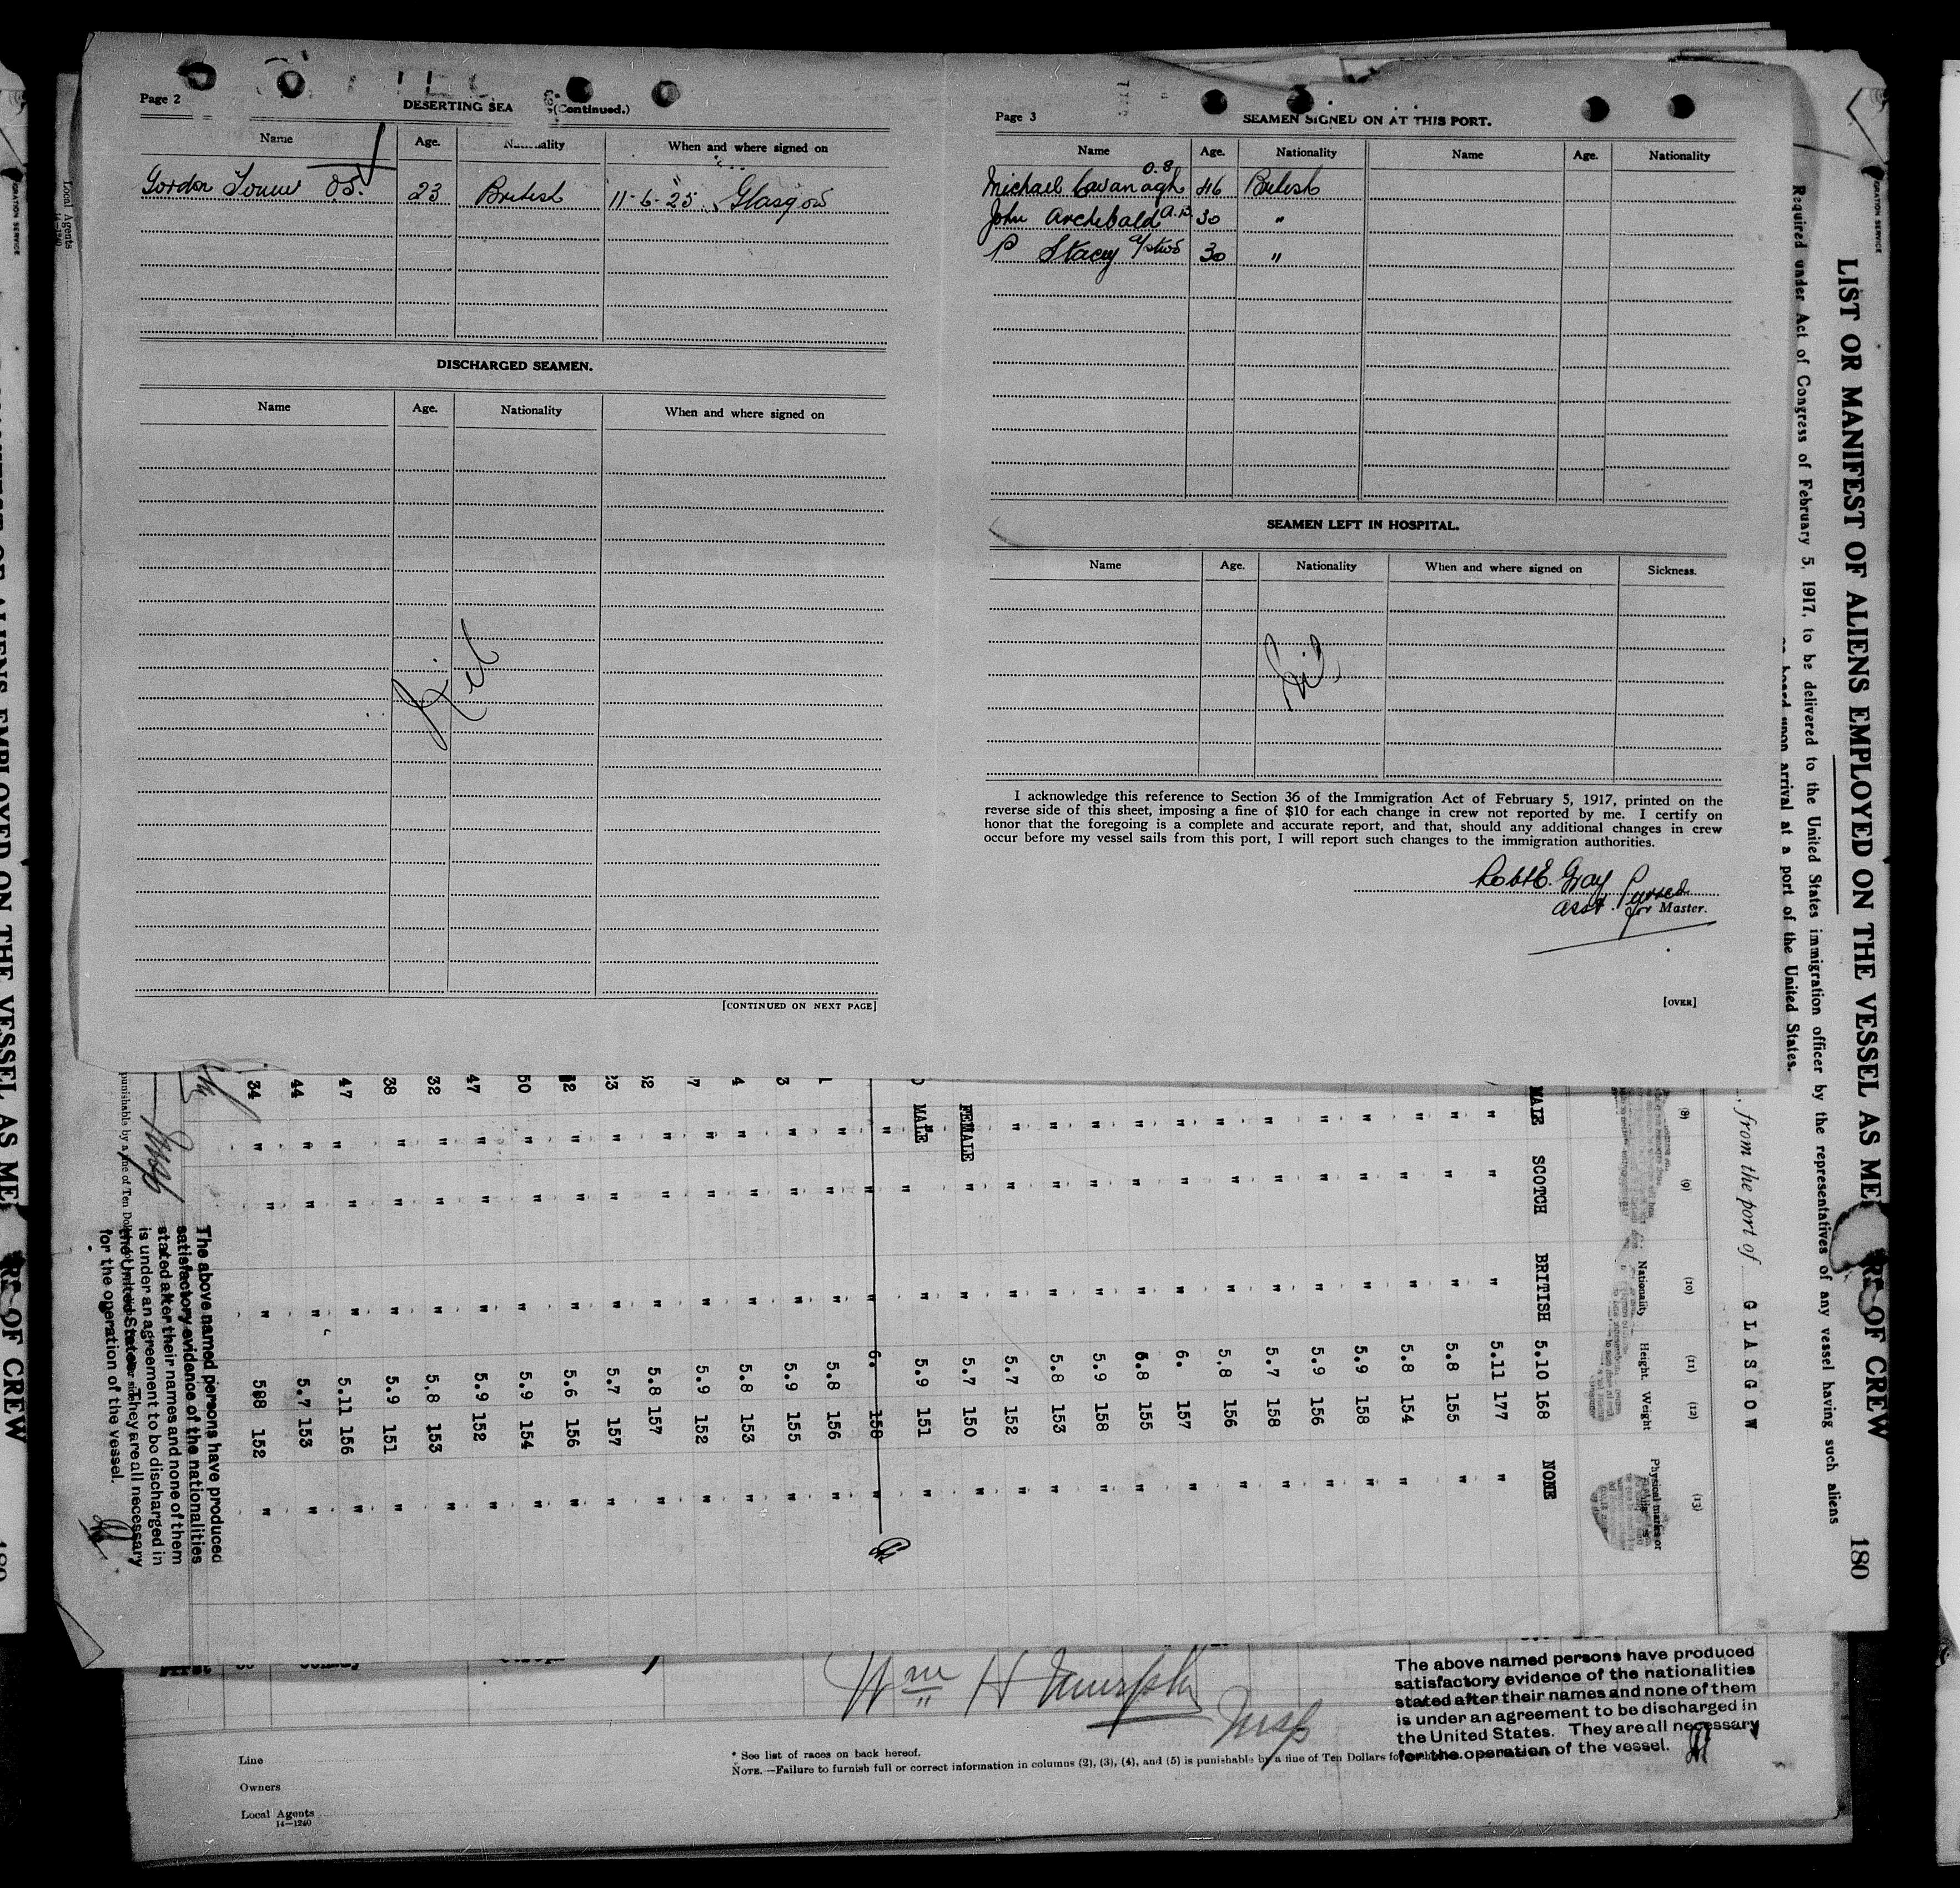 Page 2
DESERTING SEA (Continued.)
Name Age. Nationality When and where signed on
Gordon O.S. 23 British 11-6-25 Glasgow
DISCHARGED SEAMEN.
Name Age. Nationality When and where signed on
Nil
[CONTINUED ON NEXT PAGE]
Page 3
SEAMEN SIGNED ON AT THIS PORT.
Name Age. Nationality Name Age. Nationality
Michael Cavanagh 46 British
John Archibald A.B. 30 "
P Stacey 30 "
SEAMEN LEFT IN HOSPITAL.
Name Age. Nationality When and where signed on Sickness.
Nil
I acknowledge this reference to Section 36 of the Immigration Act of February 5, 1917, printed on the
reverse side of this sheet, imposing a fine of $10 for each change in crew not reported by me. I certify on
honor that the foregoing is a complete and accurate report, and that, should any additional changes in crew
occur before my vessel sails from this port, I will report such changes to the immigration authorities.
Robt E. Gray
Asst. Purser
for Master.
[OVER]
LIST OR MANIFEST OF ALIENS EMPLOYED ON THE VESSEL AS ME OF CREW
180
Required under Act of Congress of February 5, 1917, to be delivered to the United States immigration officer by the representatives of any vessel having such aliens
on board upon arrival at a port of the United States.
, from the port of GLASGOW
(8) (9) (10) (11) (12) (13)
Nationality Height. Weight Physical marks or
MALE SCOTCH BRITISH 5.10 168 NONE
" " " 5.11 177 "
" " " 5.8 155 "
" " " 5.8 154 "
" " " 5.9 158 "
" " " 5.9 156 "
" " " 5.7 158 "
" " " 5.8 156 "
" " " 6. 157 "
" " " 5.8 155 "
" " " 5.9 158 "
" " " 5.8 153 "
" " " 5.7 152 "
FEMALE " " 5.7 150 "
MALE " " 5.9 151 "
" " " 6. 158 "
" " " 5.8 156 "
" " " 5.9 155 "
" " " 5.8 153 "
" " " 5.9 152 "
" " " 5.8 157 "
" " " 5.7 157 "
" " " 5.6 156 "
50 " " " 5.9 154 "
47 " " " 5.9 152 "
32 " " " 5.8 153 "
38 " " " 5.9 151 "
47 " " " 5.11 156 "
44 " " " 5.7 153 "
34 " " " 508 152 "
The above named persons have produced
satisfactory evidence of the nationalities
stated after their names and none of them
is under an agreement to be discharged in
the United States. They are all necessary
for the operation of the vessel.
Insp
Local Agents
14—1240
Wm H Murphy
Insp
The above named persons have produced
satisfactory evidence of the nationalities
stated after their names and none of them
is under an agreement to be discharged in
the United States. They are all necessary
for the operation of the vessel.
* See list of races on back hereof.
NOTE.—Failure to furnish full or correct information in columns (2), (3), (4), and (5) is punishable by a fine of Ten Dollars
Line
Owners
Local Agents
14—1240